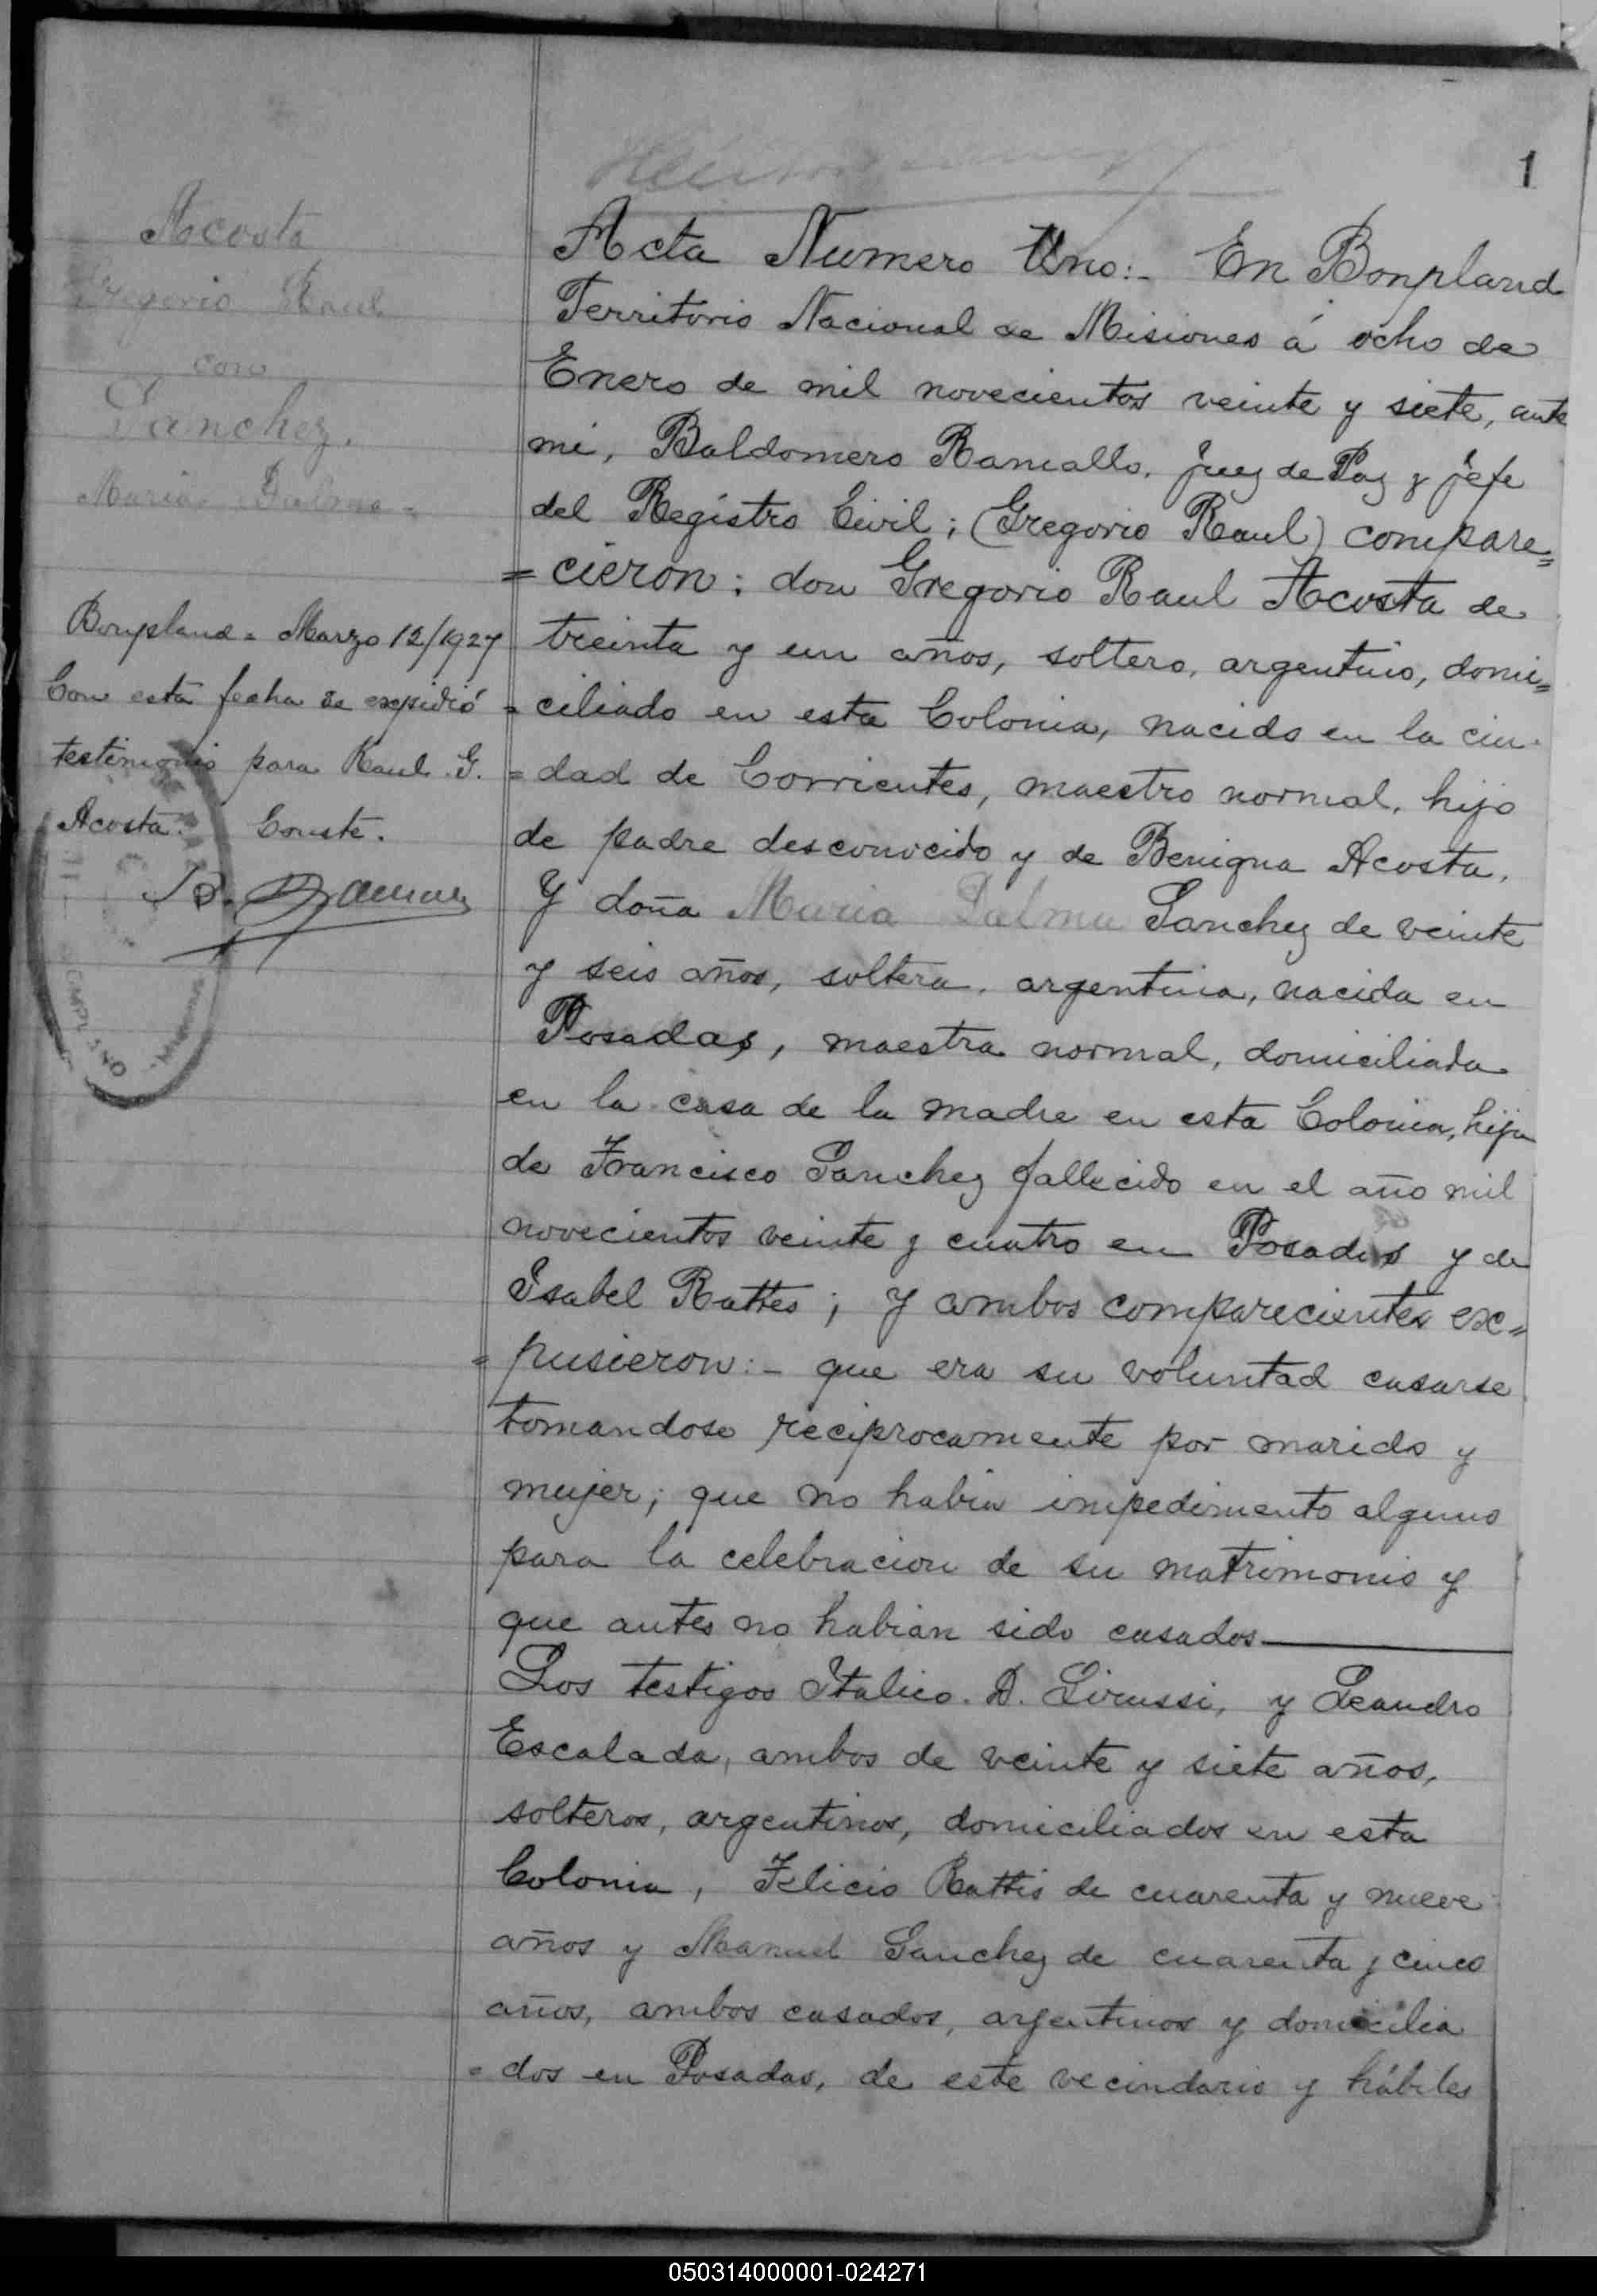 1
Acosta
Gregorio Raul
con
Sanchez.
Maria Dalma -
Bonpland = Marzo 12/1927
Con esta fecha se expidió
testimonio para Raul G.
Acosta. Conste.
Acta Numero Uno:- En Bonpland
Territorio Nacional de Misiones á ocho de
Enero de mil novecientos veinte y siete, ante
mi, Baldomero Ramallo, Juez de Paz y Jefe
del Registro Civil; (Gregorio Raul) compare=
=cieron: don Gregorio Raul Acosta de
treinta y un años, soltero, argentino, domi=
=ciliado en esta Colonia, nacido en la ciu-
=dad de Corrientes, maestro normal, hijo
de padre desconocido y de Benigna Acosta.
Y doña Maria Dalma Sanchez de veinte
y seis años, soltera, argentina, nacida en
Posadas, maestra normal, domiciliada
en la casa de la madre en esta Colonia, hija
de Francisco Sanchez fallecido en el año mil
novecientos veinte y cuatro en Posadas y de
Isabel Rattes; y ambos comparecientes ex=
=pusieron:- que era su voluntad casarse
tomandose reciprocamente por marido y
mujer; que no habia impedimento alguno
para la celebracion de su matrimonio y
que antes no habian sido casados
Los testigos Italico. D. Lirussi, y Leandro
Escalada, ambos de veinte y siete años,
solteros, argentinos, domiciliados en esta
Colonia, Felicio Rattis de cuarenta y nueve
años y Manuel Sanchez de cuarenta y cinco
años, ambos casados, argentinos y domicilia
=dos en Posadas, de este vecindario y hábiles
050314000001-024271